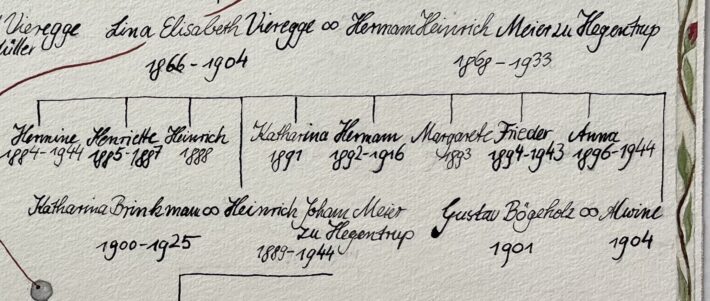 Vieregge Lina Elisabeth Vieregge ∞ Hermann Heinrich Meier zu Hegentrup
üller 1866-1904 1868-1933
Hermine Henriette Heinrich Katharina Hermann Margarete Frieder Anna
1884-1944 1885-1887 1888 1891 1892-1916 1893 1894-1943 1896-1944
Katharina Brinkmann ∞ Heinrich Johann Meier Gustav Bögeholz ∞ Alwine
zu Hegentrup
1900-1925 1889-1944 1901 1904